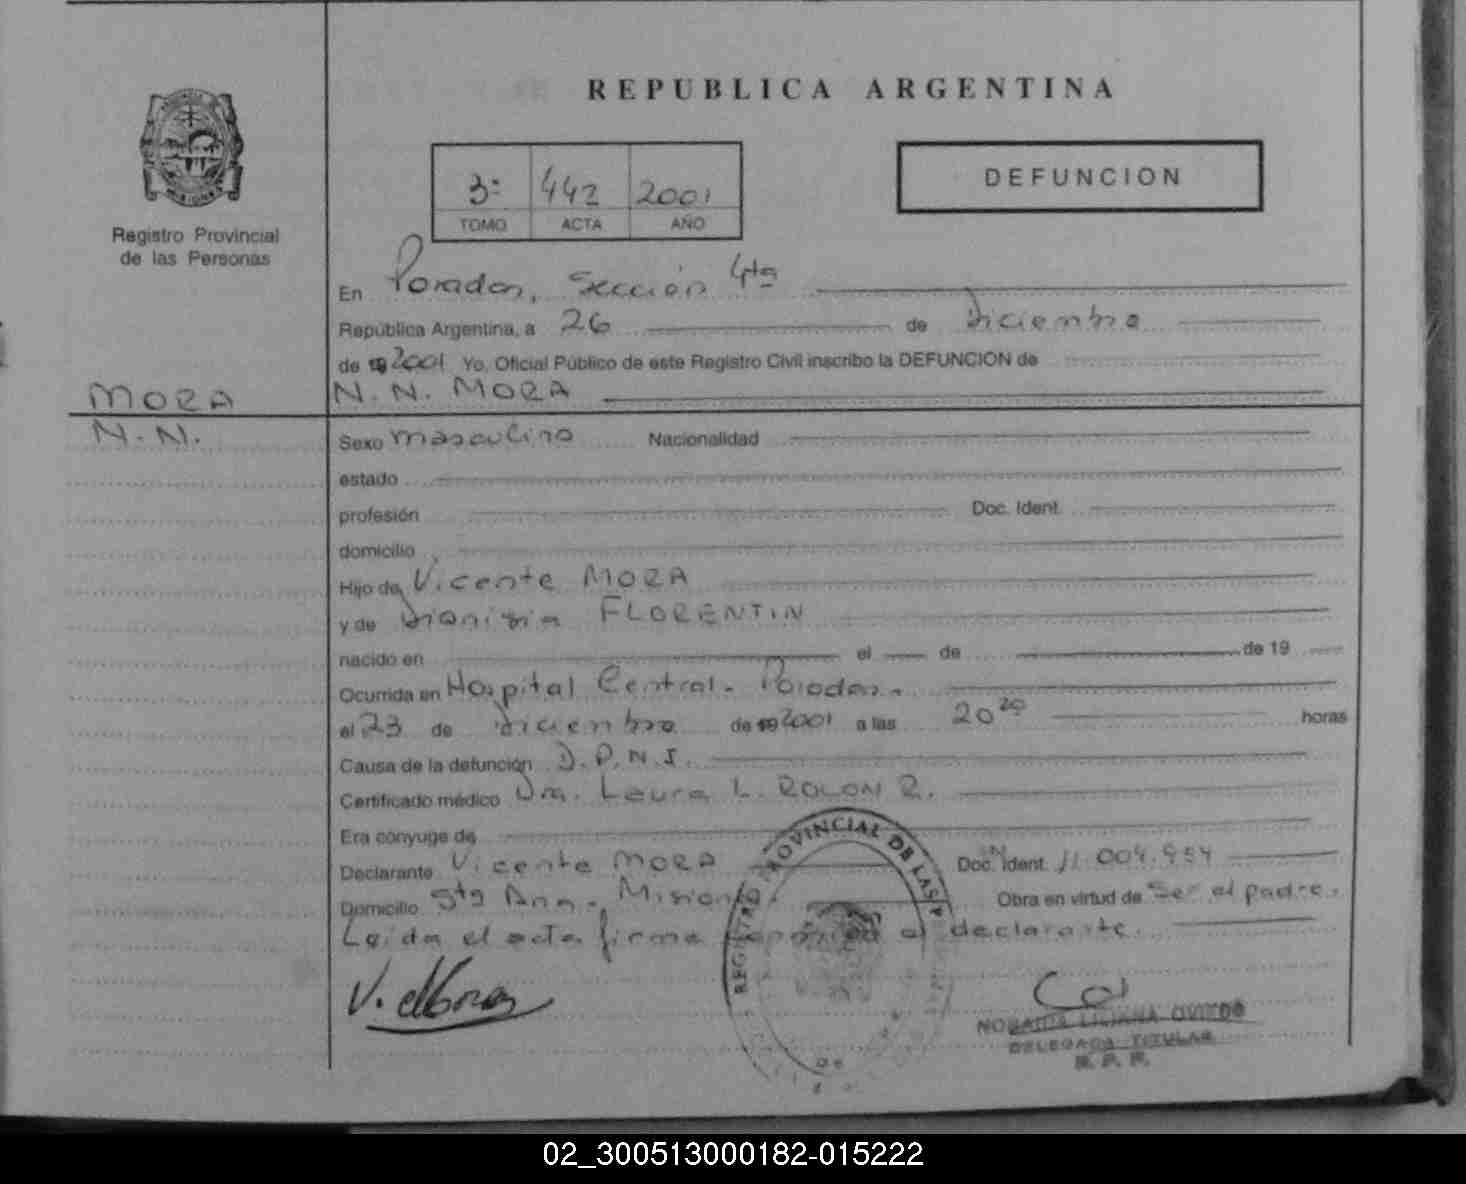 REPUBLICA ARGENTINA
3º 442 2001
TOMO ACTA AÑO
DEFUNCION
Registro Provincial
de las Personas
En Posadas, Sección 4ta
República Argentina, a 26 de Diciembre
de 2001 Yo, Oficial Público de este Registro Civil inscribo la DEFUNCION de
N. N. MORA
MORA
N. N.
Sexo masculino Nacionalidad
estado
profesión Doc. Ident.
domicilio
Hijo de Vicente MORA
y de Dionisia FLORENTIN
nacido en el de de 19
Ocurrida en Hospital Central. Posadas.
el 23 de Diciembre de 2001 a las 20 20 horas
Causa de la defunción D.P.N.I.
Certificado médico Dra. Laura L. ROLON R.
Era cónyuge de
Declarante Vicente MORA Doc. Ident. 11.004.954
Domicilio Sta Ana. Misiones. Obra en virtud de Ser el padre.
Leída el acta firma conmigo el declarante.
V. Mora
REGISTRO PROVINCIAL DE LAS
LILIANA OVIEDO
DELEGADA TITULAR
R. P. P.
02_300513000182-015222